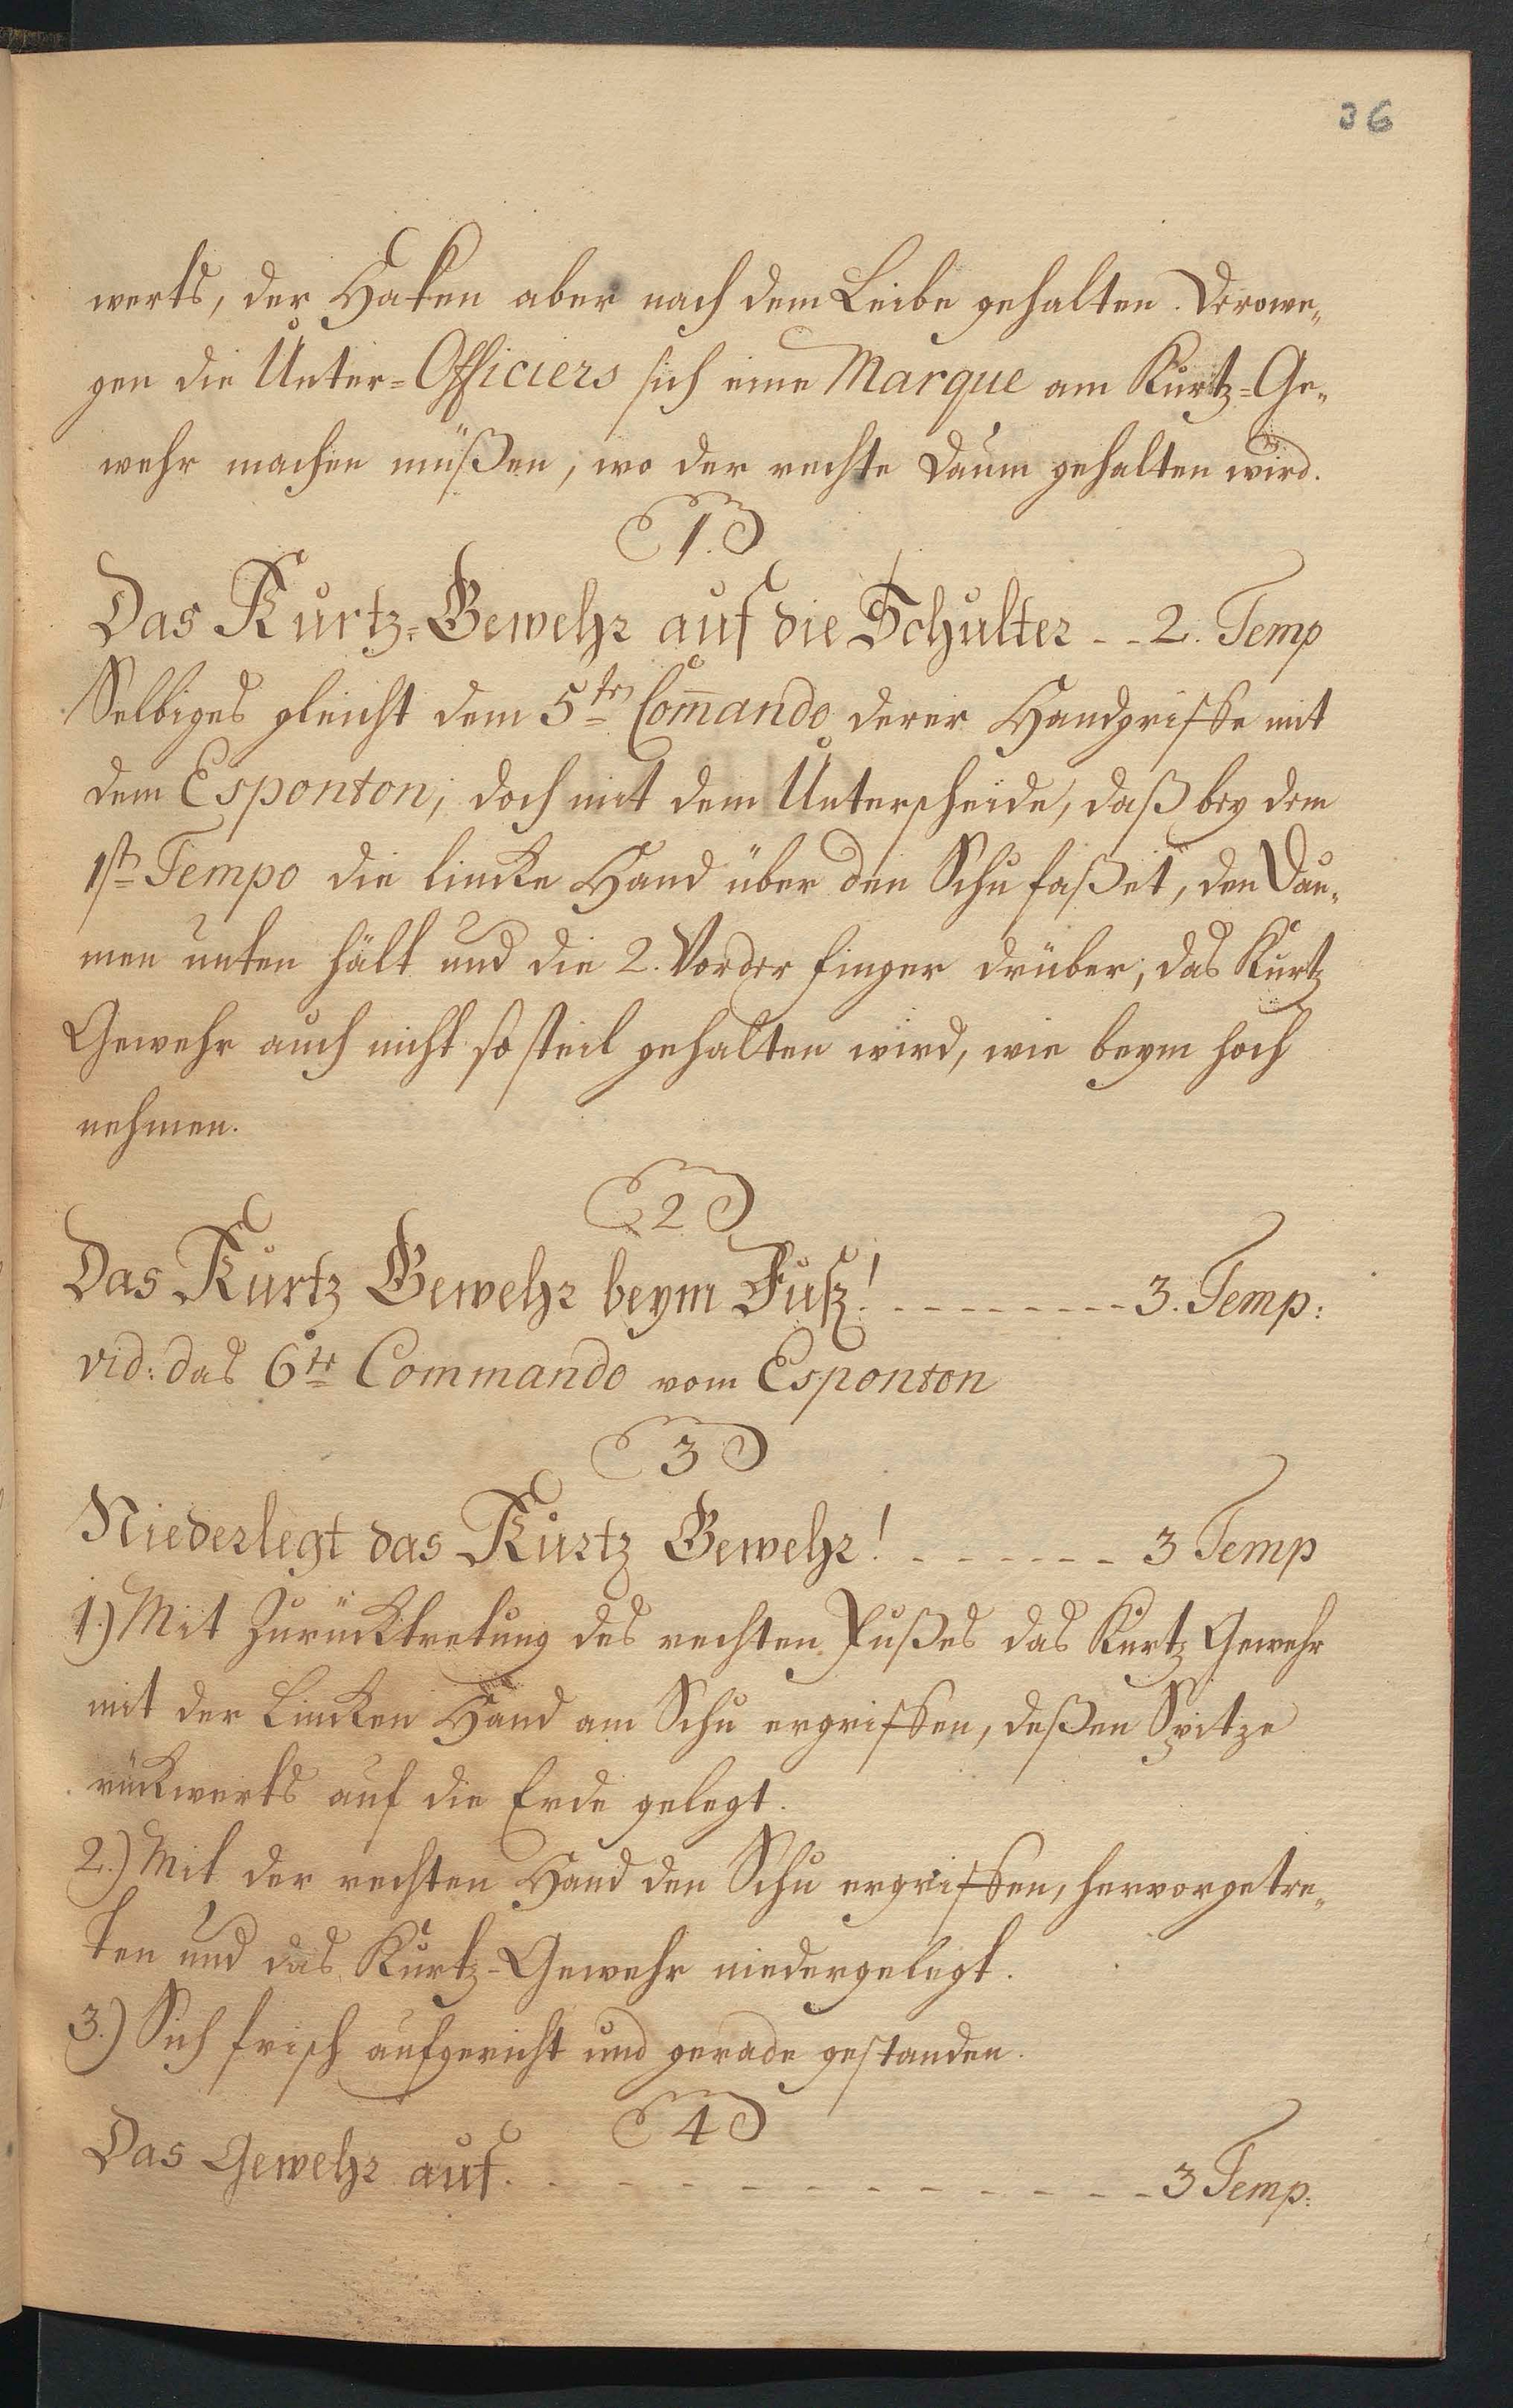 36
werts, der Haken aber nach dem Leibe gehalten. Derowe„
gen die Unter=Officiers sich eine Marque am Kurtz=Ge„
wehr machen müßen, wo der rechte Daum gehalten wird.
1.
Das Kurtz=Gewehr auf die Schulter - - 2. Temp
Selbiges gleicht dem 5ten Com̄ando derer Handgriffe mit
dem Esponton, doch mit dem Unterscheide, daß bey dem
1stn Tempo die lincke Hand über den Schu faßet, den Dau„
men unten hält und die 2. Vorder finger drüber, das Kurtz
Gewehr auch nicht so steil gehalten wird, wie beym hoch
nehmen.
2
Das Kurtz Gewehr beym Fuß! - - - - - - - - 3. Temp:
vid: das 6te Commando vom Esponton
3
Niederlegt das Kurtz Gewehr! - - - - - - - 3 Temp
1.) Mit Zurücktretung des rechten Fußes das Kurtz Gewehr
mit der Lincken Hand am Schu ergriffen, deßen Spitze
rückwerts auf die Erde gelegt.
2.) Mit der rechten Hand den Schu ergriffen, hervorgetre„
ten und das Kurtz-Gewehr niedergelegt.
3.) Sich frisch aufgericht und gerade gestanden.
4
Das Gewehr auf. - - - - - - - - - - - 3 Temp: